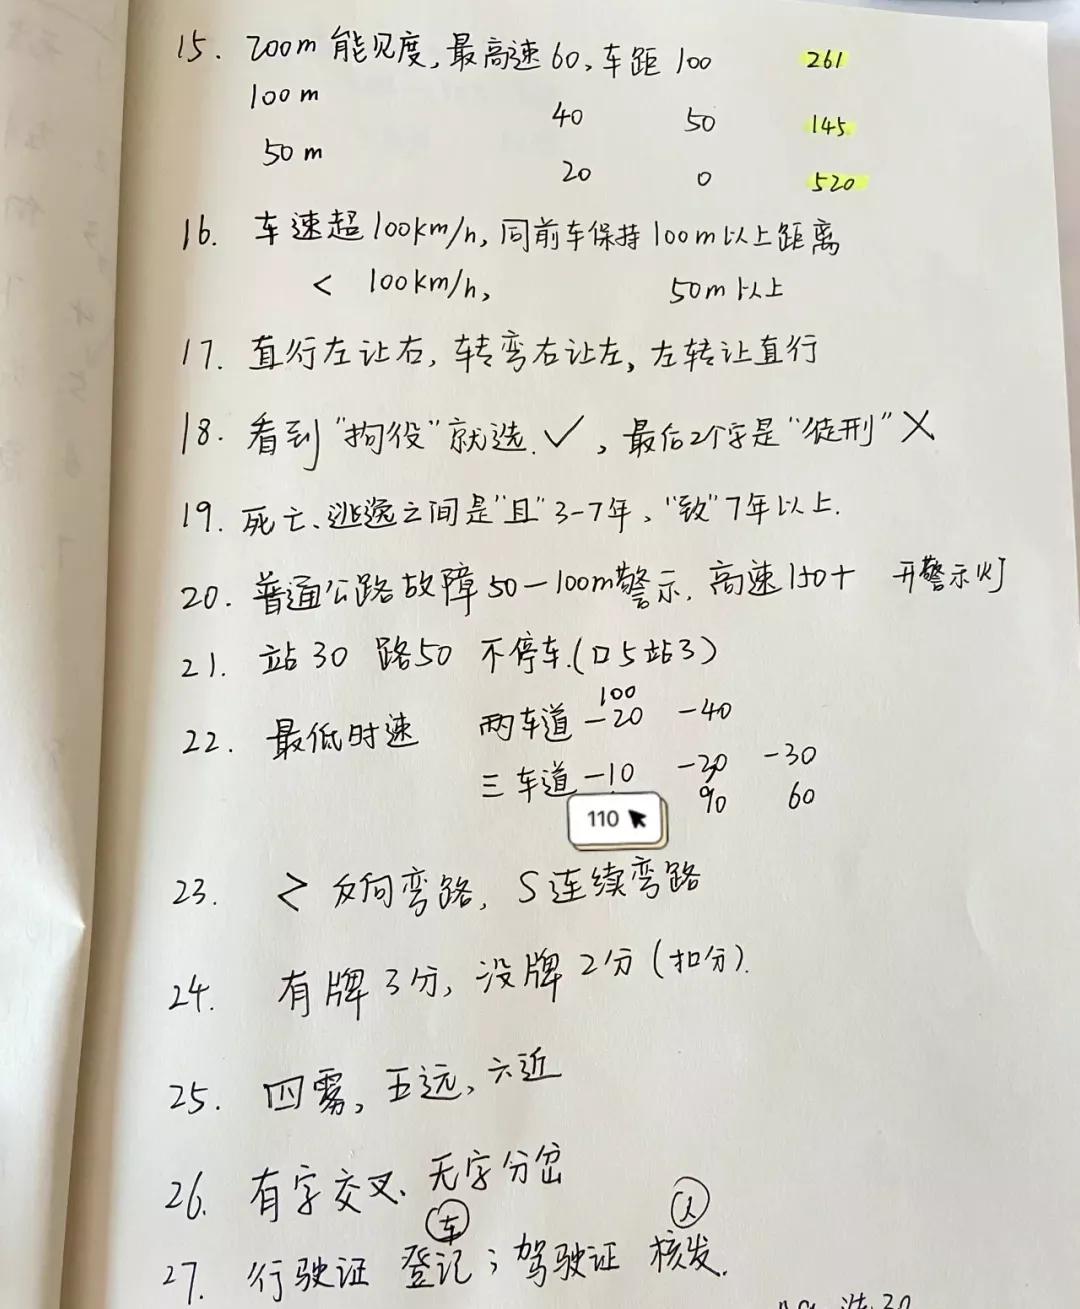 15. 200m 能见度,最高速60,车距 100 261
100m 40 50 145
50m 20 0 520
16. 车速超100km/h,同前车保持100m以上距离
< 100km/h, 50m以上
17. 直行左让右,转弯右让左,左转让直行
18. 看到“拘役”就选✓,最后2个字是“徒刑”X
19. 死亡、逃逸之间是“且”3-7年、“致”7年以上.
20. 普通公路故障50-100m警示,高速150+ 开警示灯
21. 站30 路50 不停车.(口5站3)
100
22. 最低时速 两车道 -20 -40
三车道 -10 -20 -30
110 90 60
23. > 反向弯路, S连续弯路
24. 有牌3分,没牌2分(扣分).
25. 四雾,五远,六近
26. 有字交叉、无字分岔
车 人
27. 行驶证 登记;驾驶证 核发.
选30